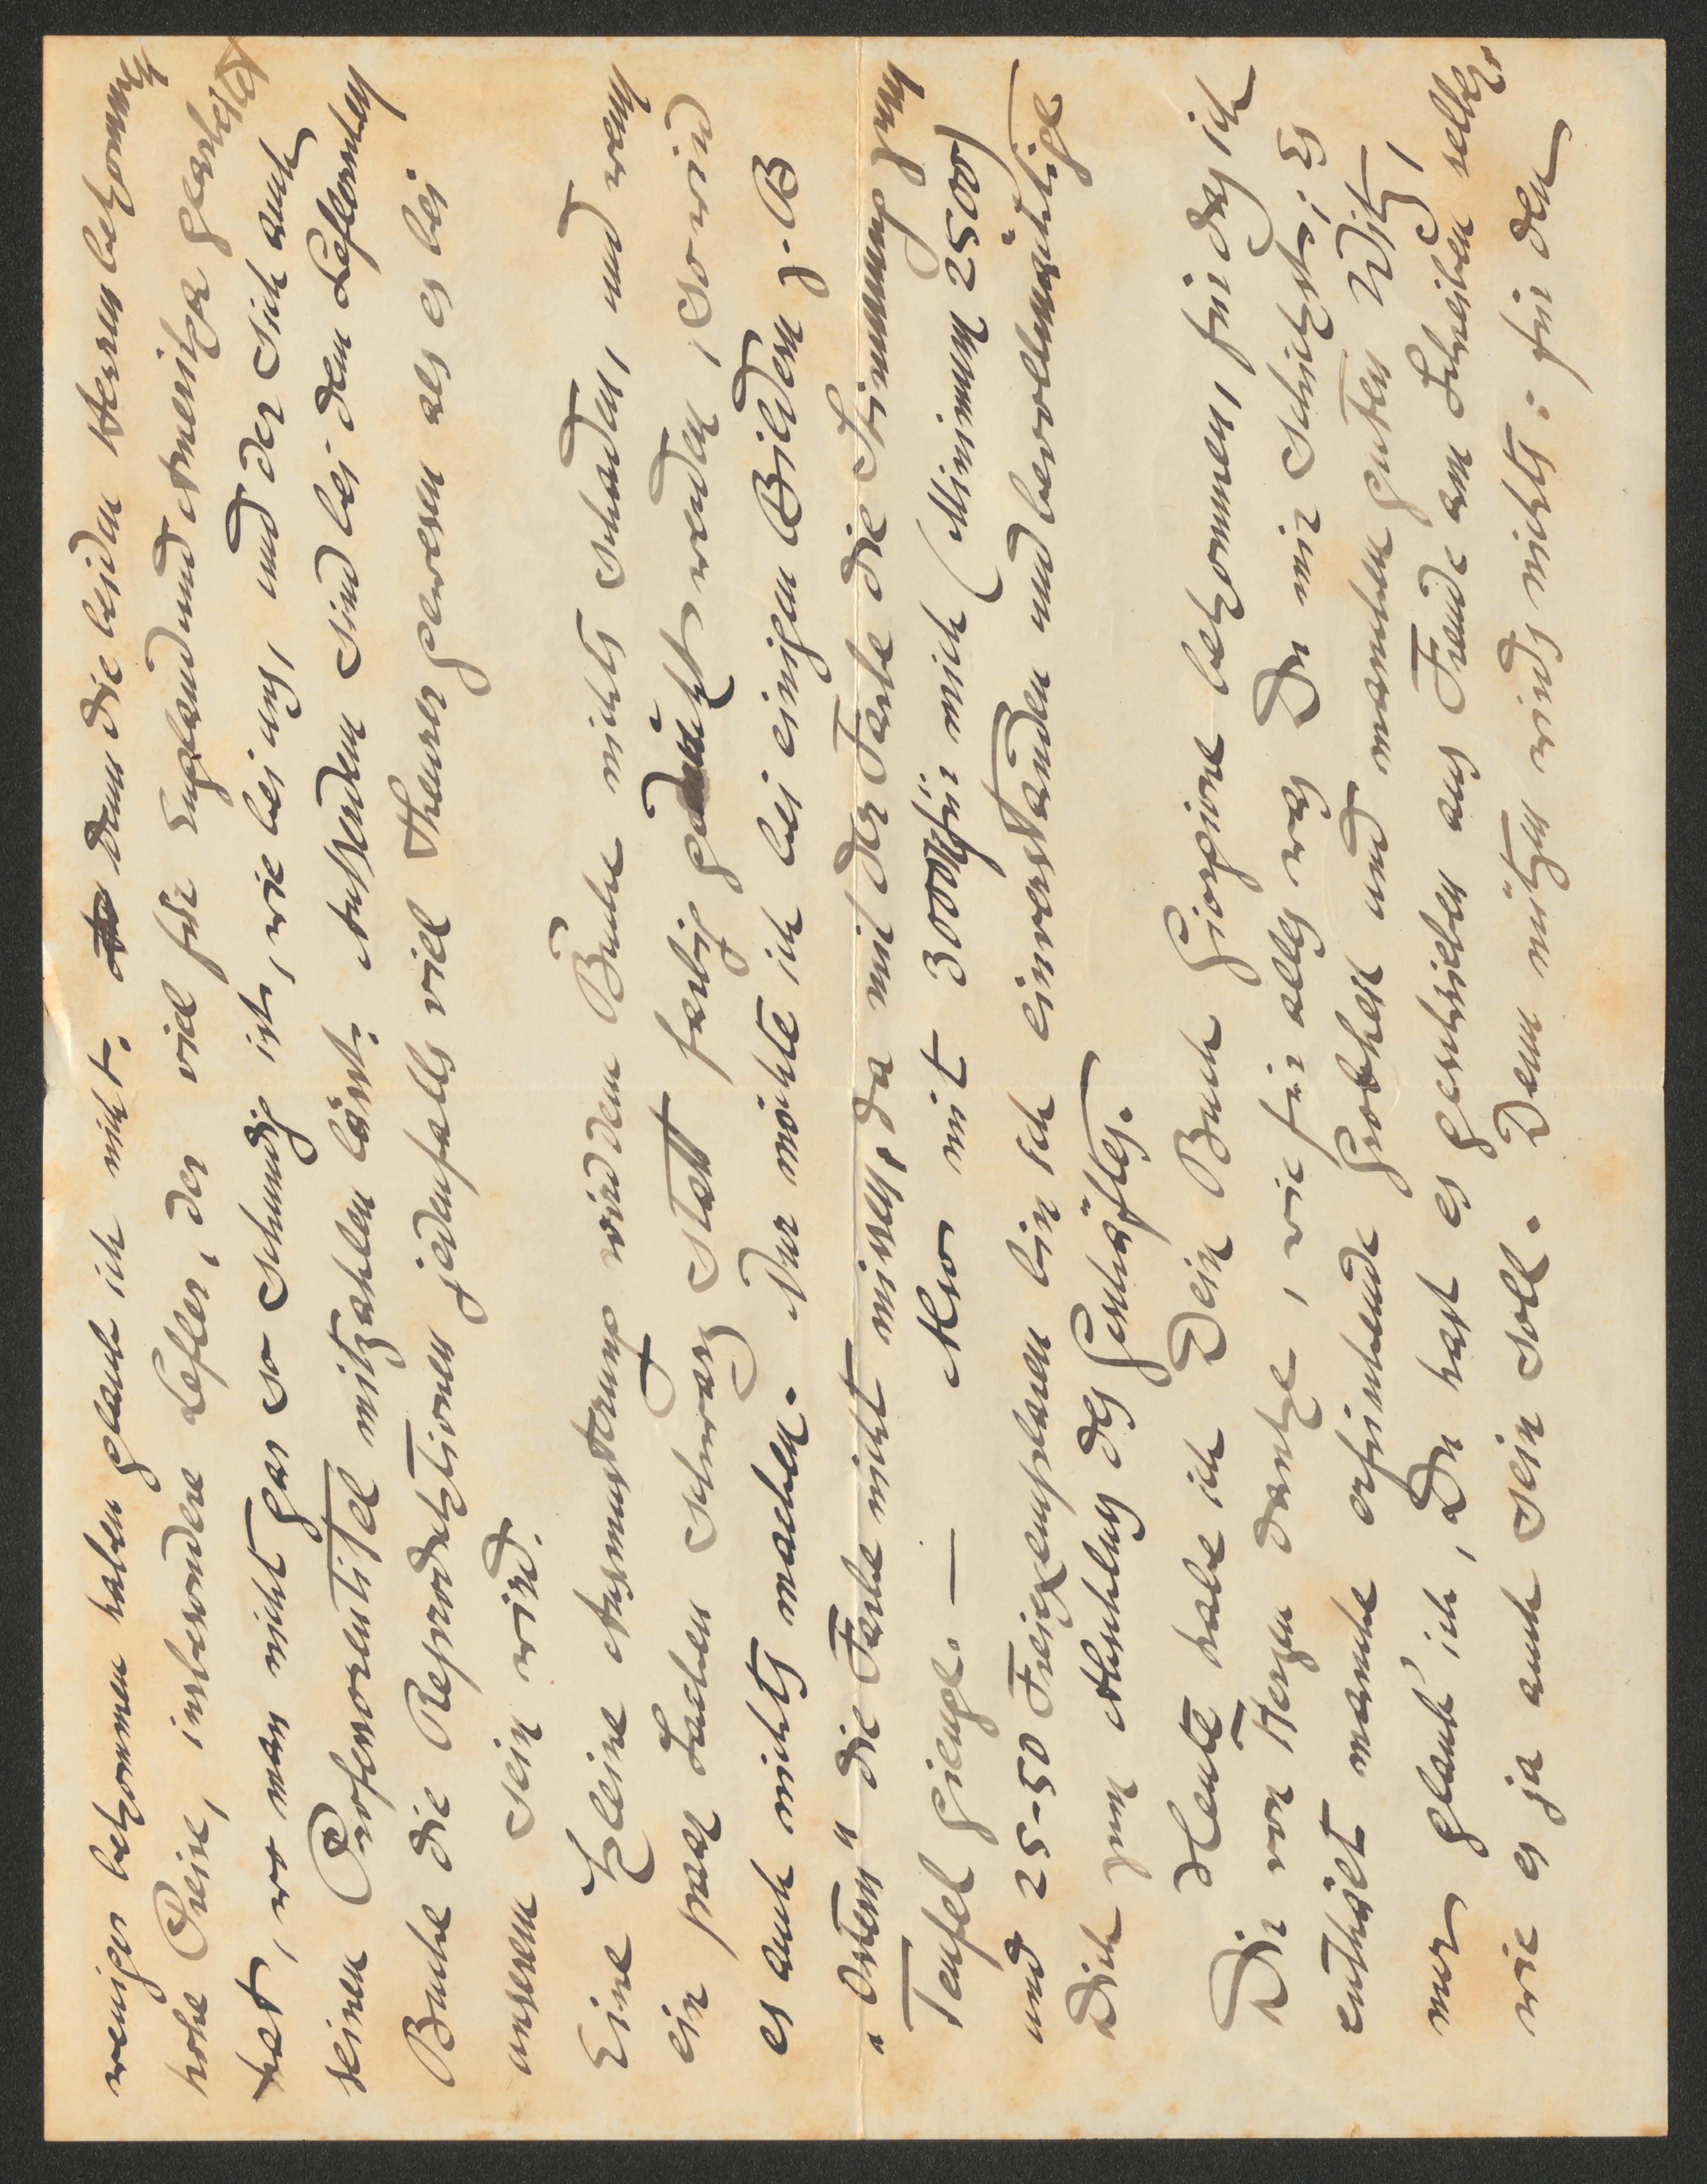 weniger bekommen haben glaube ich nicht. Denn die beiden Herren bekommen
hohe Preise, insbesondere Lefler, der viel für England und Amerika gearbeitet
hat, wo man nicht gar so schundig ist, wie bei uns, und der sich auch
seinen Professorentitel mitzahlen lässt. Ausserdem sind bei dem Leflerschen
Buche die Reproduktionen jedenfalls viel theurer gewesen als es bei
unserem sein wird.
Eine kleine Ausmusterung wird dem Buche nichts schaden, und wenn
ein paar Sachen schwarz statt farbig gedruckt werden, so wird
es auch nichts machen. Nur möchte ich bei einigen Bildern z. B
„Ostern" die Farbe nicht missen, da mit der Farbe die Stimmung zum
Teufel gienge. — Also mit 3000 K für mich (Minimum 2500)
und 25-50 Freiexemplaren bin ich einverstanden und bevollmächtige
Dich zum Abschluss des Geschäftes.
Heute habe ich Dein Buch Giorgione bekommen, für das ich
Dir von Herzen danke, wie für alles was Du mir schickst; Es
enthält manche erfrischende Grobheit und manchen guten Witz,
nur glaub' ich, Du hast es geschrieben aus Freude am Schreiben selber
wie es ja auch sein soll. Denn nützen wirds nichts: für den